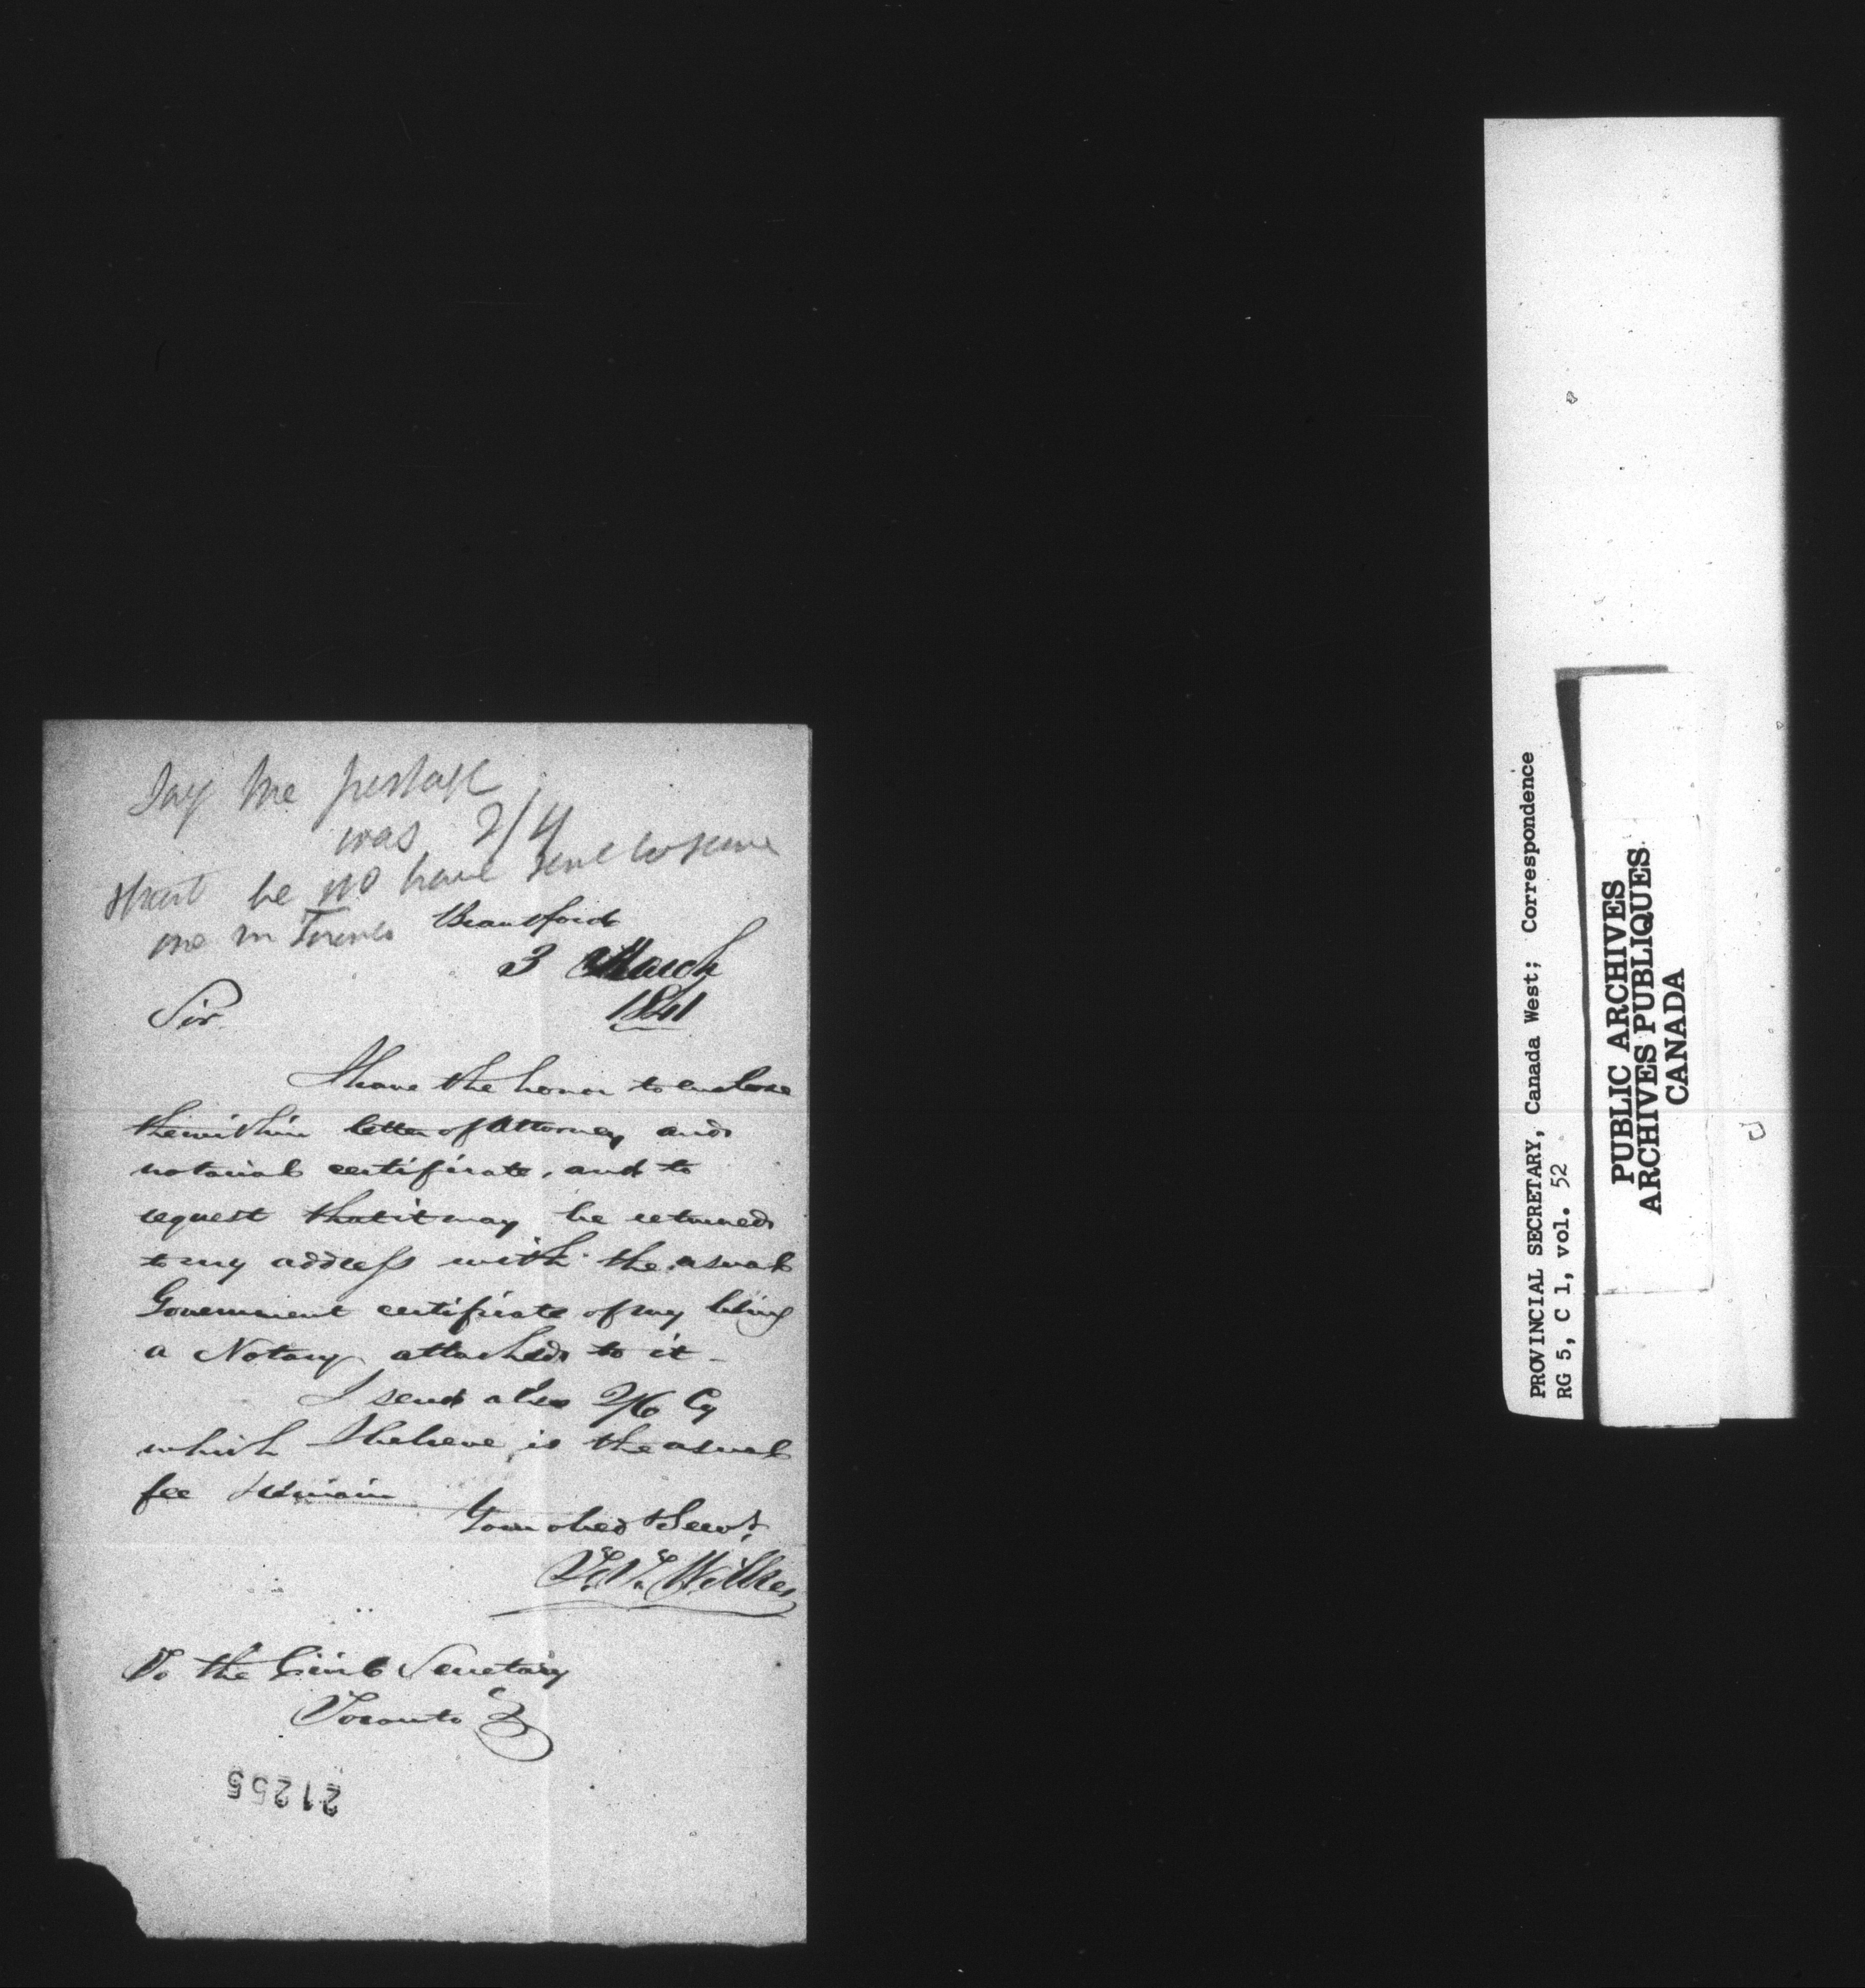 Say the postage
was 2/4
that he have some
one in Toronto
Brantford
3 March
1841
Sir
I have the honor to enclose
the within letter of Attorney and
notarial certificate, and to
request that it may be returned
to my address with the usual
Government certificate of my being
a Notary attached to it -
I send also 2/6 Cy
which I believe is the usual
fee I remain
Your obed Servt
Wilkes
To the Civil Secretary
Toronto
21255
PROVINCIAL SECRETARY, Canada West; Correspondence
RG 5, C 1, vol. 52
PUBLIC ARCHIVES
ARCHIVES PUBLIQUES
CANADA